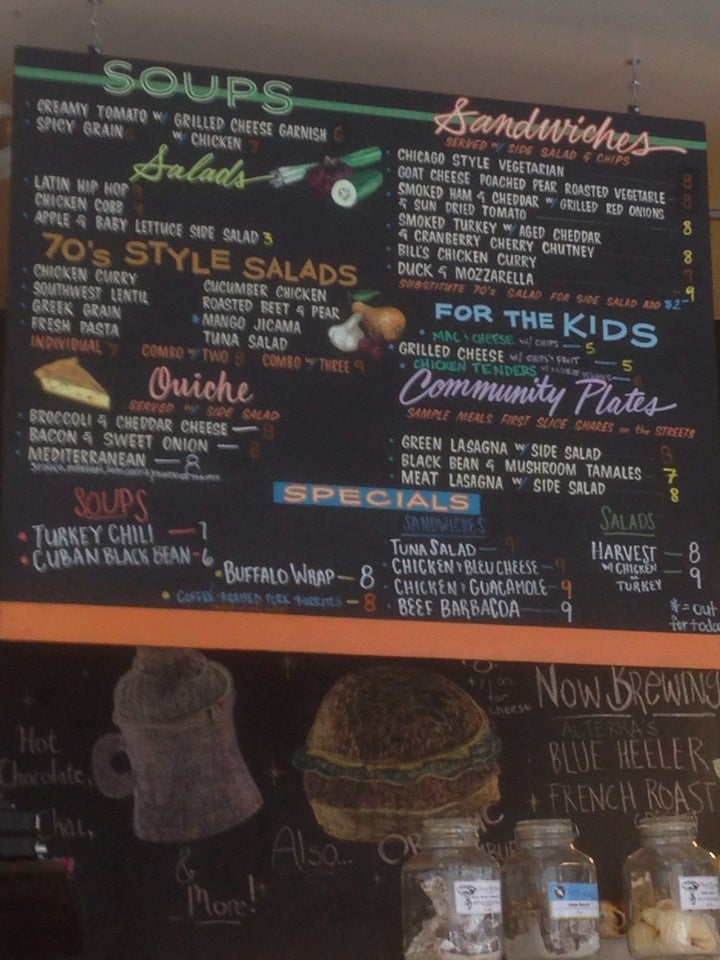 SOUPS
CREAMY TOMATO W/ GRILLED CHEESE GARNISH 6
SPICY GRAIN 6 W/ CHICKEN 7
Salads
LATIN HIP HOP
CHICKEN COBB
APPLE & BABY LETTUCE SIDE SALAD 3
70's STYLE SALADS
CHICKEN CURRY
SOUTHWEST LENTIL
GREEK GRAIN
FRESH PASTA
CUCUMBER CHICKEN
ROASTED BEET & PEAR
* MANGO JICAMA
TUNA SALAD
INDIVIDUAL 7 COMBO W/ TWO 8 COMBO W/ THREE 9
Quiche
SERVED W/ SIDE SALAD
BROCCOLI & CHEDDAR CHEESE — 8
BACON & SWEET ONION — 8
MEDITERRANEAN — 8
Sandwiches
SERVED W/ SIDE SALAD & CHIPS
CHICAGO STYLE VEGETARIAN 8
GOAT CHEESE POACHED PEAR ROASTED VEGETABLE 8
SMOKED HAM & CHEDDAR W/ GRILLED RED ONIONS
& SUN DRIED TOMATO 8
SMOKED TURKEY W/ AGED CHEDDAR
& CRANBERRY CHERRY CHUTNEY 8
BILL'S CHICKEN CURRY
DUCK & MOZZARELLA 9
SUBSTITUTE 70's SALAD FOR SIDE SALAD ADD $2
FOR THE KIDS
MAC & CHEESE W/ CHIPS — 5
GRILLED CHEESE W/ CHIPS & FRUIT — 5
CHICKEN TENDERS
Community Plates
SAMPLE MEALS FIRST SLICE SHARES on the STREETS
GREEN LASAGNA W/ SIDE SALAD 8
BLACK BEAN & MUSHROOM TAMALES 7
MEAT LASAGNA W/ SIDE SALAD 8
SPECIALS
SOUPS
TURKEY CHILI — 7
CUBAN BLACK BEAN - 6
BUFFALO WRAP — 8
COFFEE BRAISED PORK BURRITOS — 8
SANDWICHES
TUNA SALAD — 9
CHICKEN & BLEU CHEESE — 9
CHICKEN & GUACAMOLE — 9
BEEF BARBACOA — 9
SALADS
HARVEST — 8
W/ CHICKEN OR TURKEY — 9
* = out
for today
Hot
Chocolate,
Chai,
& More!
Also...
for
cheese
NOW BREWING
ALTERRA'S
BLUE HEELER
FRENCH ROAST